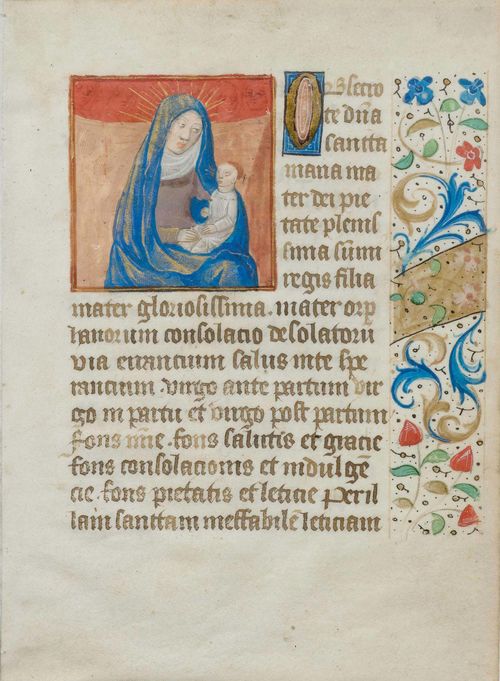 Obsecro
te dña
sancta
maria ma
ter dei pie
tate plenis
sima sum̃i
regis filia
mater gloriosissima. mater orp
hanorum consolacio desolatoru
via errancium salus in te spe
rancium. virgo ante partum vir
go in partu et virgo post partum
fons mĩe. fons salutis et gracie
fons consolacionis et indulgẽ
cie. fons pietatis et leticie Per il
lam sanctam ineffabilẽ leticiam